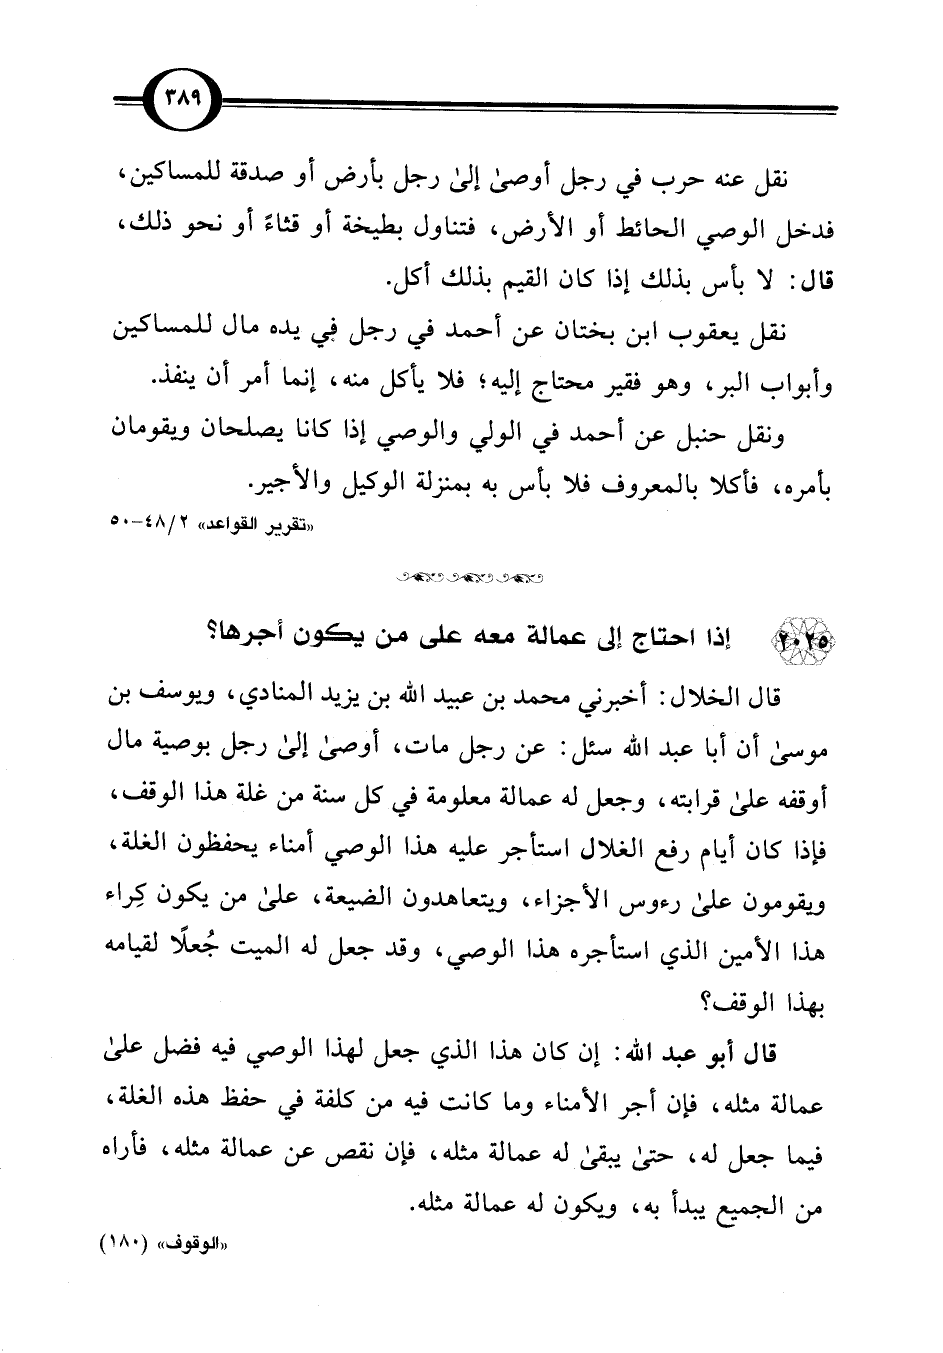 ٣٨٩
نقل عنه حرب في رجل أوصىٰ إلىٰ رجل بأرض أو صدقة للمساكين،
فدخل الوصي الحائط أو الأرض، فتناول بطيخة أو قثاءً أو نحو ذلك،
قال: لا بأس بذلك إذا كان القيم بذلك أكل.
نقل يعقوب ابن بختان عن أحمد في رجل في يده مال للمساكين
وأبواب البر، وهو فقير محتاج إليه؛ فلا يأكل منه، إنما أمر أن ينفذ.
ونقل حنبل عن أحمد في الولي والوصي إذا كانا يصلحان ويقومان
بأمره، فأكلا بالمعروف فلا بأس به بمنزلة الوكيل والأجير.
«تقرير القواعد» ٤٨/٢-٥٠
٢٠٢٥ إذا احتاج إلى عمالة معه على من يكون أجرها؟
قال الخلال: أخبرني محمد بن عبيد الله بن يزيد المنادي، ويوسف بن
موسىٰ أن أبا عبد الله سئل: عن رجل مات، أوصىٰ إلىٰ رجل بوصية مال
أوقفه علىٰ قرابته، وجعل له عمالة معلومة في كل سنة من غلة هذا الوقف،
فإذا كان أيام رفع الغلال استأجر عليه هذا الوصي أمناء يحفظون الغلة،
ويقومون علىٰ رءوس الأجزاء، ويتعاهدون الضيعة، علىٰ من يكون كِراء
هذا الأمين الذي استأجره هذا الوصي، وقد جعل له الميت جُعلًا لقيامه
بهذا الوقف؟
قال أبو عبد الله: إن كان هذا الذي جعل لهذا الوصي فيه فضل علىٰ
عمالة مثله، فإن أجر الأمناء وما كانت فيه من كلفة في حفظ هذه الغلة،
فيما جعل له، حتىٰ يبقىٰ له عمالة مثله، فإن نقص عن عمالة مثله، فأراه
من الجميع يبدأ به، ويكون له عمالة مثله.
«الوقوف» (١٨٠)